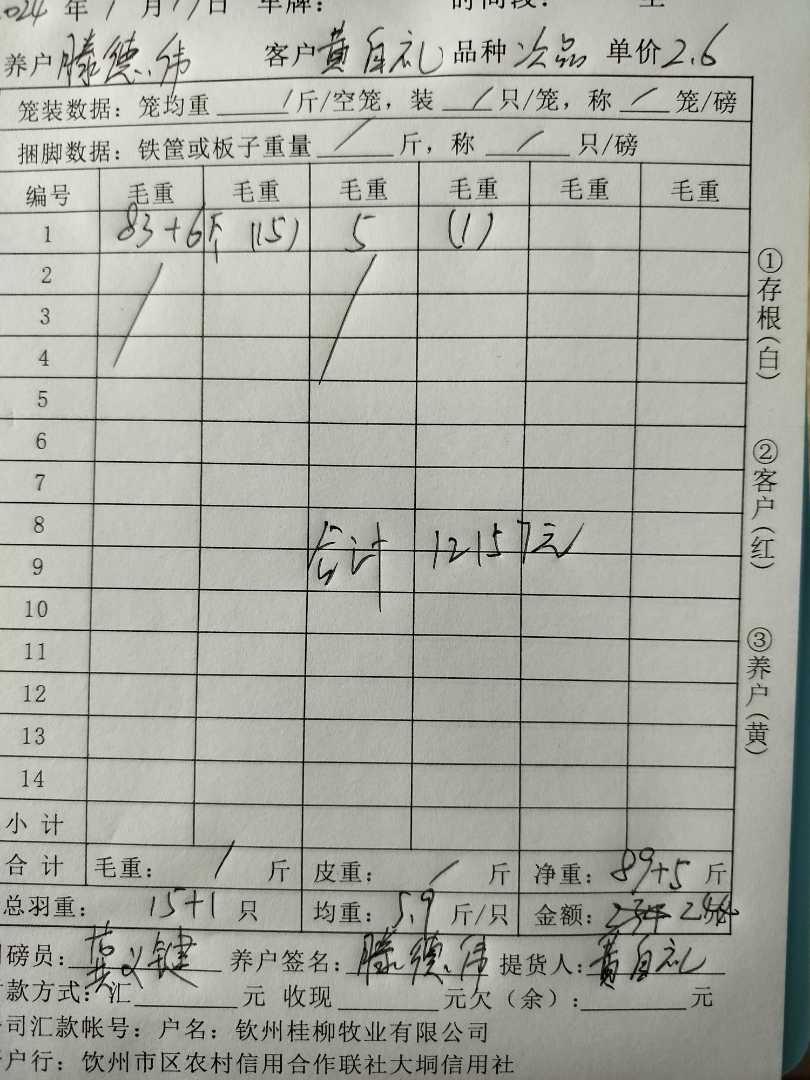 2024 年 1 月 17 日 车牌： 时间段：
养户 滕德伟 客户 黄自礼 品种 次品 单价 2.6
笼装数据：笼均重 / 斤/空笼，装 / 只/笼，称 / 笼/磅
捆脚数据：铁筐或板子重量 / 斤，称 / 只/磅
编号 毛重 毛重 毛重 毛重 毛重 毛重
1 83+6斤 (15) 5 (1)
2
3
4
5
6
7
8
合计 12157元
9
10
11
12
13
14
小 计
合 计 毛重： / 斤 皮重： / 斤 净重：89+5 斤
总羽重： 15+1 只 均重：5.9 斤/只 金额：244
磅员：黄义键 养户签名：滕德伟 提货人：黄自礼
款方式：汇 元 收现 元欠（余）： 元
司汇款帐号：户名：钦州桂柳牧业有限公司
户行：饮州市区农村信用合作联社大垌信用社
①存根（白）
②客户（红）
③养户（黄）